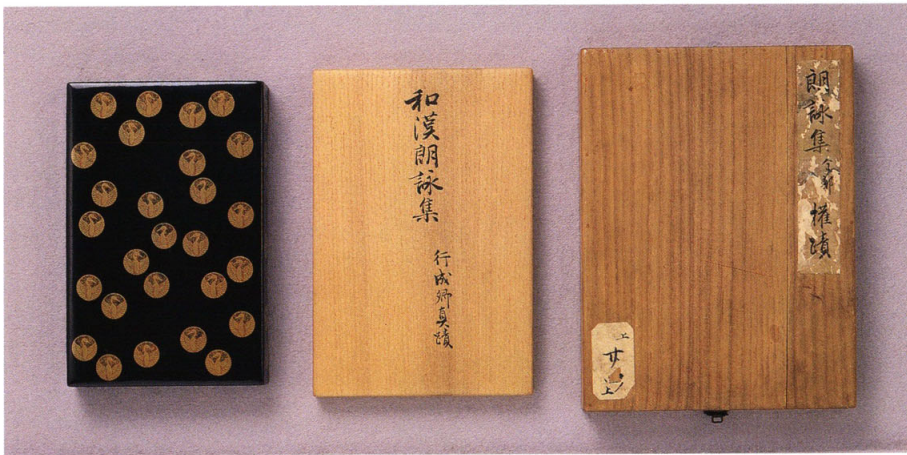 和漢朗詠集
行成卿真蹟
朗詠集 全部 権蹟
上